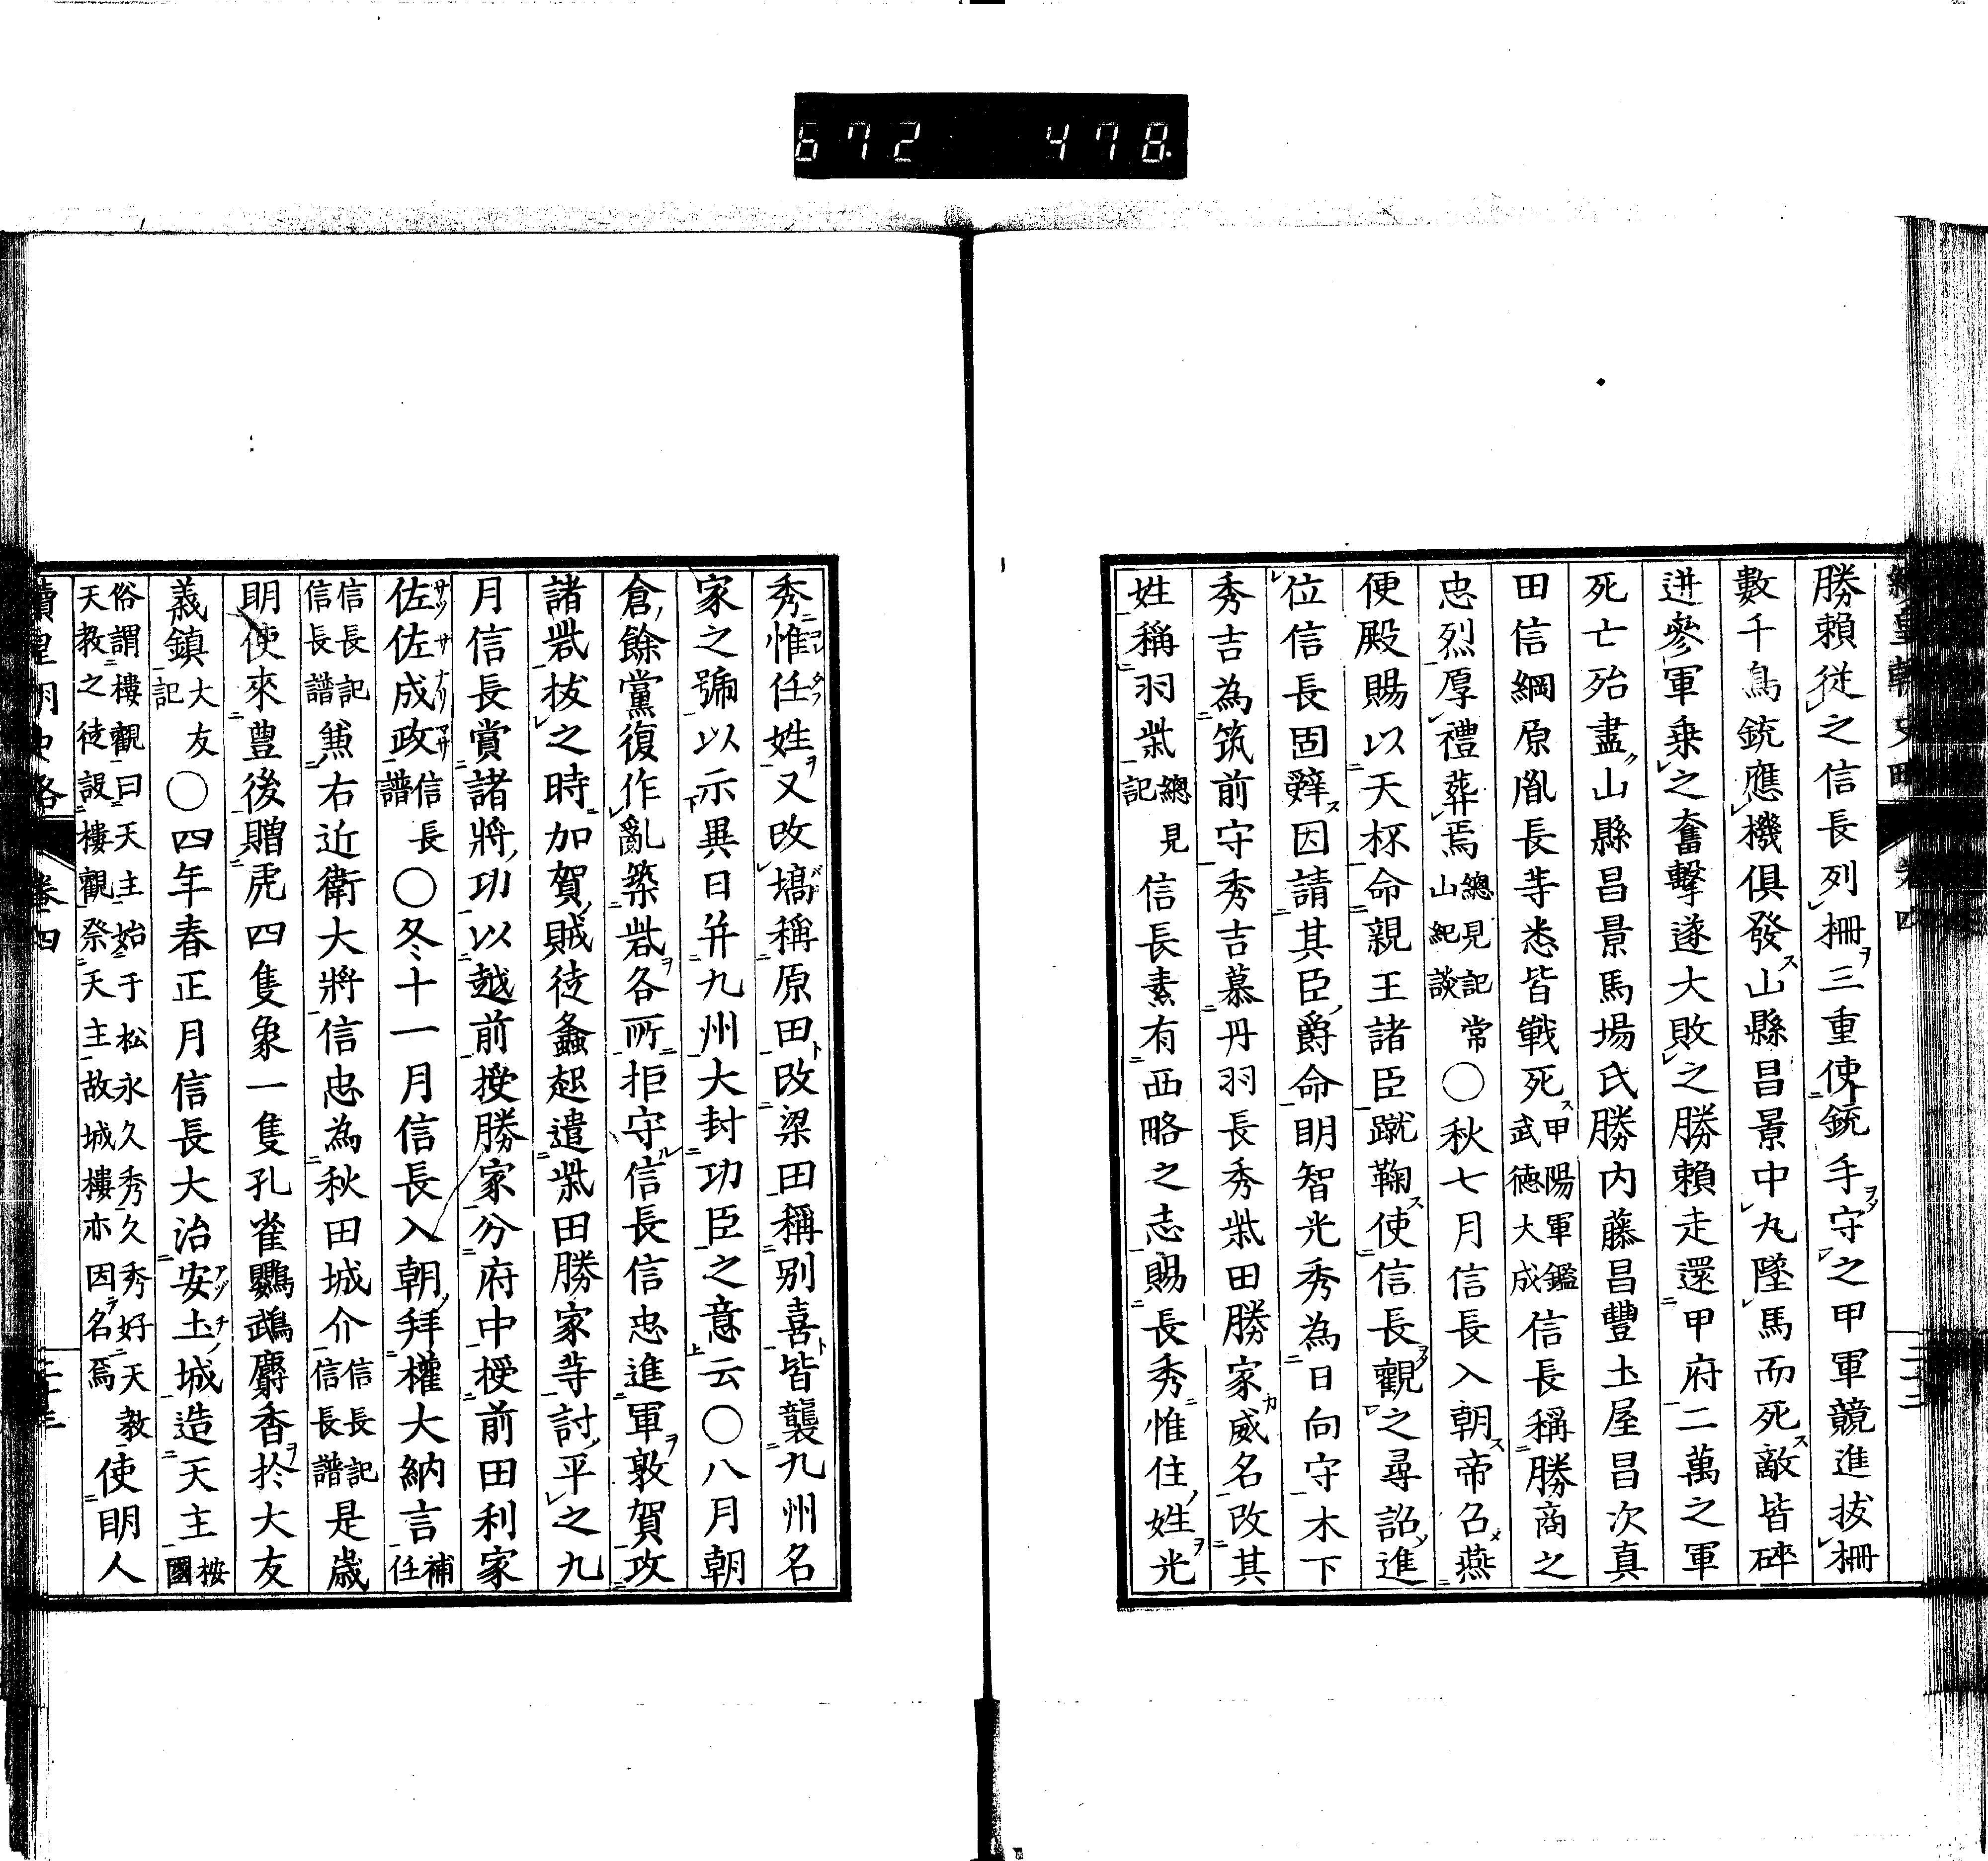 672 478
勝賴從之信長列柵三重使銃手守之甲軍競進拔柵
數千鳥銃應機俱發山縣昌景中丸墜馬而死敵皆碎
迸參軍乘之奮擊遂大敗之勝賴走還甲府二萬之軍
死亡殆盡山縣昌景馬場氏勝内藤昌豐土屋昌次真
田信綱原胤長等悉皆戰死甲陽軍鑑武德大成信長稱勝商之
忠烈厚禮葬焉總見記常山紀談〇秋七月信長入朝帝召燕
便殿賜以天杯命親王諸臣蹴鞠使信長觀之尋詔進
位信長固辭因請其臣爵命明智光秀為日向守木下
秀吉為筑前守秀吉慕丹羽長秀柴田勝家威名改其
姓稱羽柴總見記信長素有西略之志賜長秀惟住姓光
秀惟任姓又改塙稱原田改梁田稱別喜皆襲九州名
家之號以示異日并九州大封功臣之意云〇八月朝
倉餘黨復作亂築砦各所拒守信長信忠進軍敦賀攻
諸砦拔之時加賀賊徒蠭起遣柴田勝家等討平之九
月信長賞諸將功以越前授勝家分府中授前田利家
佐佐成政信長譜〇冬十一月信長入朝拜權大納言補任
信長記信長譜兼右近衛大將信忠為秋田城介信長記信長譜是歲
明使來豊後贈虎四隻象一隻孔雀鸚鵡麝香於大友
義鎮大友記〇四年春正月信長大治安土城造天主按國
俗謂樓觀曰天主始于松永久秀久秀好天教天教之徒設樓觀祭天主故城樓亦因名焉使明人
卷四